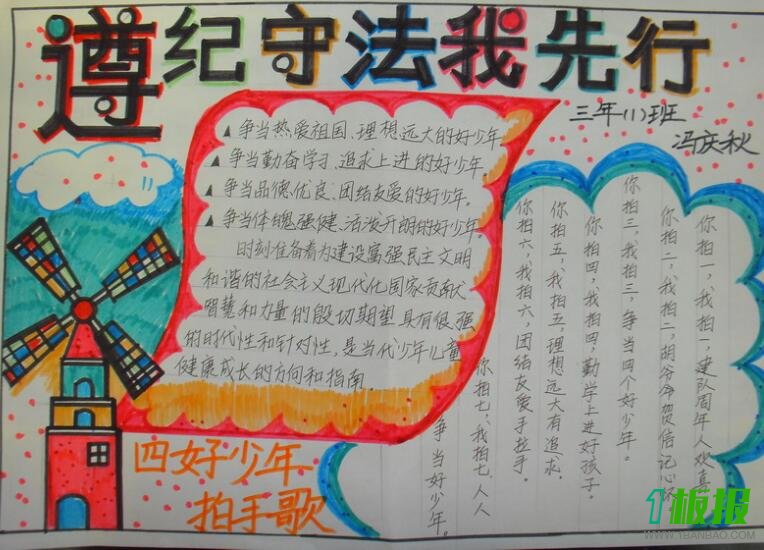 遵纪守法我先行
三年(1)班
冯庆秋
▲争当热爱祖国、理想远大的好少年
▲争当勤奋学习、追求上进的好少年。
▲争当品德优良、团结友爱的好少年。
▲争当体魄强健、活泼开朗的好少年。
时刻准备着为建设富强民主文明
和谐的社会主义现代化国家贡献
智慧和力量的殷切期望具有很强
的时代性和针对性,是当代少年儿童
健康成长的方向和指南。
四好少年
拍手歌
你拍一,我拍一,建队周年人欢喜
你拍二,我拍二,胡爷爷贺信记心
你拍三,我拍三,争当四个好少年。
你拍四,我拍四,勤学上进好孩子。
你拍五,我拍五,理想远大有追求。
你拍六,我拍六,团结友爱手拉手。
你拍七,我拍七,人人
争当好少年。
1板报
WWW.1BANBAO.COM